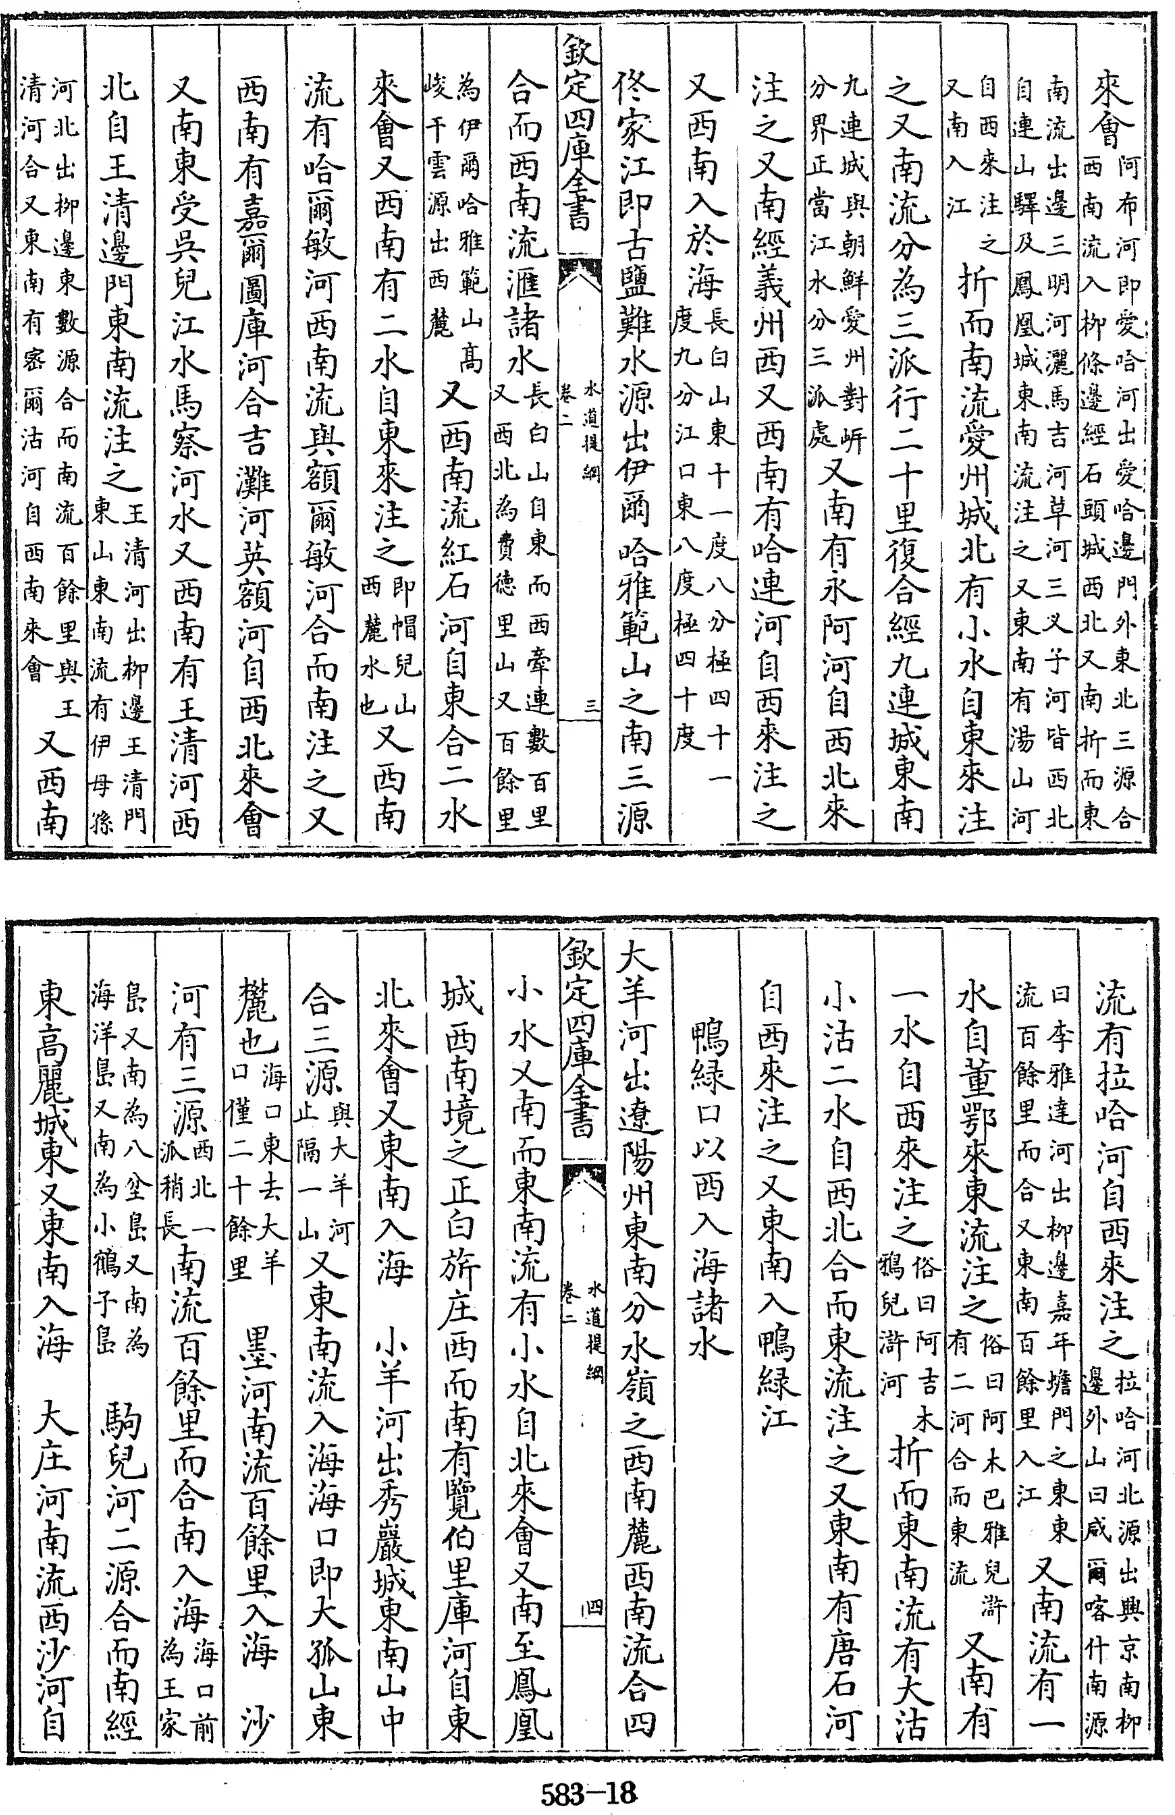 來會阿布河即愛哈河出愛哈邊門外東北三源合西南流入柳條邊經石頭城西北又南折而東
南流出邊三明河灑馬吉河草河三叉子河皆西北自連山驛及鳳凰城東南流注之又東南有湯山河
自西來注之又南入江折而南流愛州城北有小水自東來注
之又南流分為三派行二十里復合經九連城東南
九連城與朝鮮愛州對岍分界正當江水分三派處又南有永阿河自西北來
注之又南經義州西又西南有哈連河自西來注之
又西南入於海長白山東十一度八分極四十一度九分江口東八度極四十度
佟家江即古鹽難水源出伊爾哈雅範山之南三源
欽定四庫全書
水道提綱
卷二
三
合而西南流滙諸水長白山自東而西牽連數百里又西北為費德里山又百餘里
為伊爾哈雅範山高峻干雲源出西麓又西南流紅石河自東合二水
來會又西南有二水自東來注之即帽兒山西麓水也又西南
流有哈爾敏河西南流與額爾敏河合而南注之又
西南有嘉爾圖庫河合吉灘河英額河自西北來會
又南東受吳兒江水馬察河水又西南有王清河西
北自王清邊門東南流注之王清河出柳邊王清門東山東南流有伊母孫
河北出柳邊東數源合而南流百餘里與王清河合又東南有密爾沽河自西南來會又西南
流有拉哈河自西來注之拉哈河北源出興京南柳邊外山曰咸爾喀什南源
曰李雅達河出柳邊嘉年墻門之東東流百餘里而合又東南百餘里入江又南流有一
水自董鄂來東流注之俗曰阿木巴雅兒滸有二河合而東流又南有
一水自西來注之俗曰阿吉木鴉兒滸河折而東南流有大沽
小沽二水自西北合而東流注之又東南有唐石河
自西來注之又東南入鴨綠江
鴨綠口以西入海諸水
大羊河出遼陽州東南分水嶺之西南麓西南流合四
欽定四庫全書
水道提綱
卷二
四
小水又南而東南流有小水自北來會又南至鳳凰
城西南境之正白旂庄西而南有覽伯里庫河自東
北來會又東南入海 小羊河出秀巖城東南山中
合三源與大羊河止隔一山又東南流入海海口即大孤山東
麓也海口東去大羊口僅二十餘里 墨河南流百餘里入海 沙
河有三源西北一派稍長南流百餘里而合南入海海口前為王家
島又南為八坌島又南為海洋島又南為小鶴子島 駒兒河二源合而南經
東高麗城東又東南入海 大庄河南流西沙河自
583-18